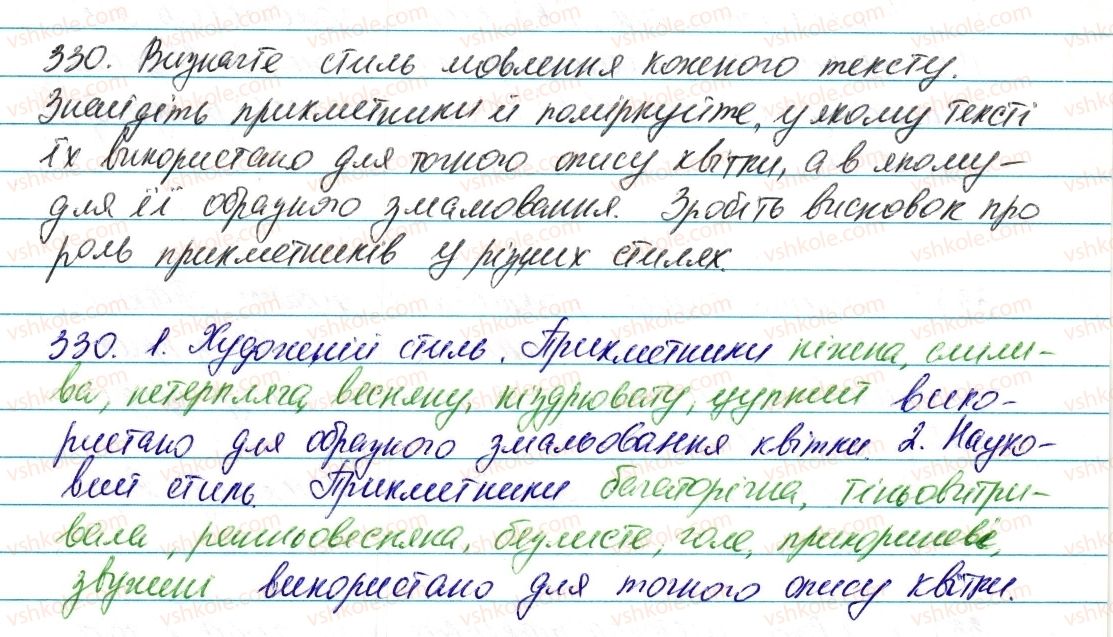 330. Визначте стиль мовлення кожного тексту.
Знайдіть прикметники й поміркуйте, у якому тексті
їх використано для точного опису квітки, а в якому –
для її образного змалювання. Зробіть висновок про
роль прикметників у різних стилях.
330. 1. Художній стиль. Прикметники ніжна, сміли-
ва, нетерпляча, весняну, ніздрювату, цупкий вико-
ристано для образного змальовання квітки. 2. Науко-
вий стиль. Прикметники багаторічна, тіньовитри-
вала, ранньовесняна, безлисте, голе, прикореневі,
звужені використано для точного опису квітки.